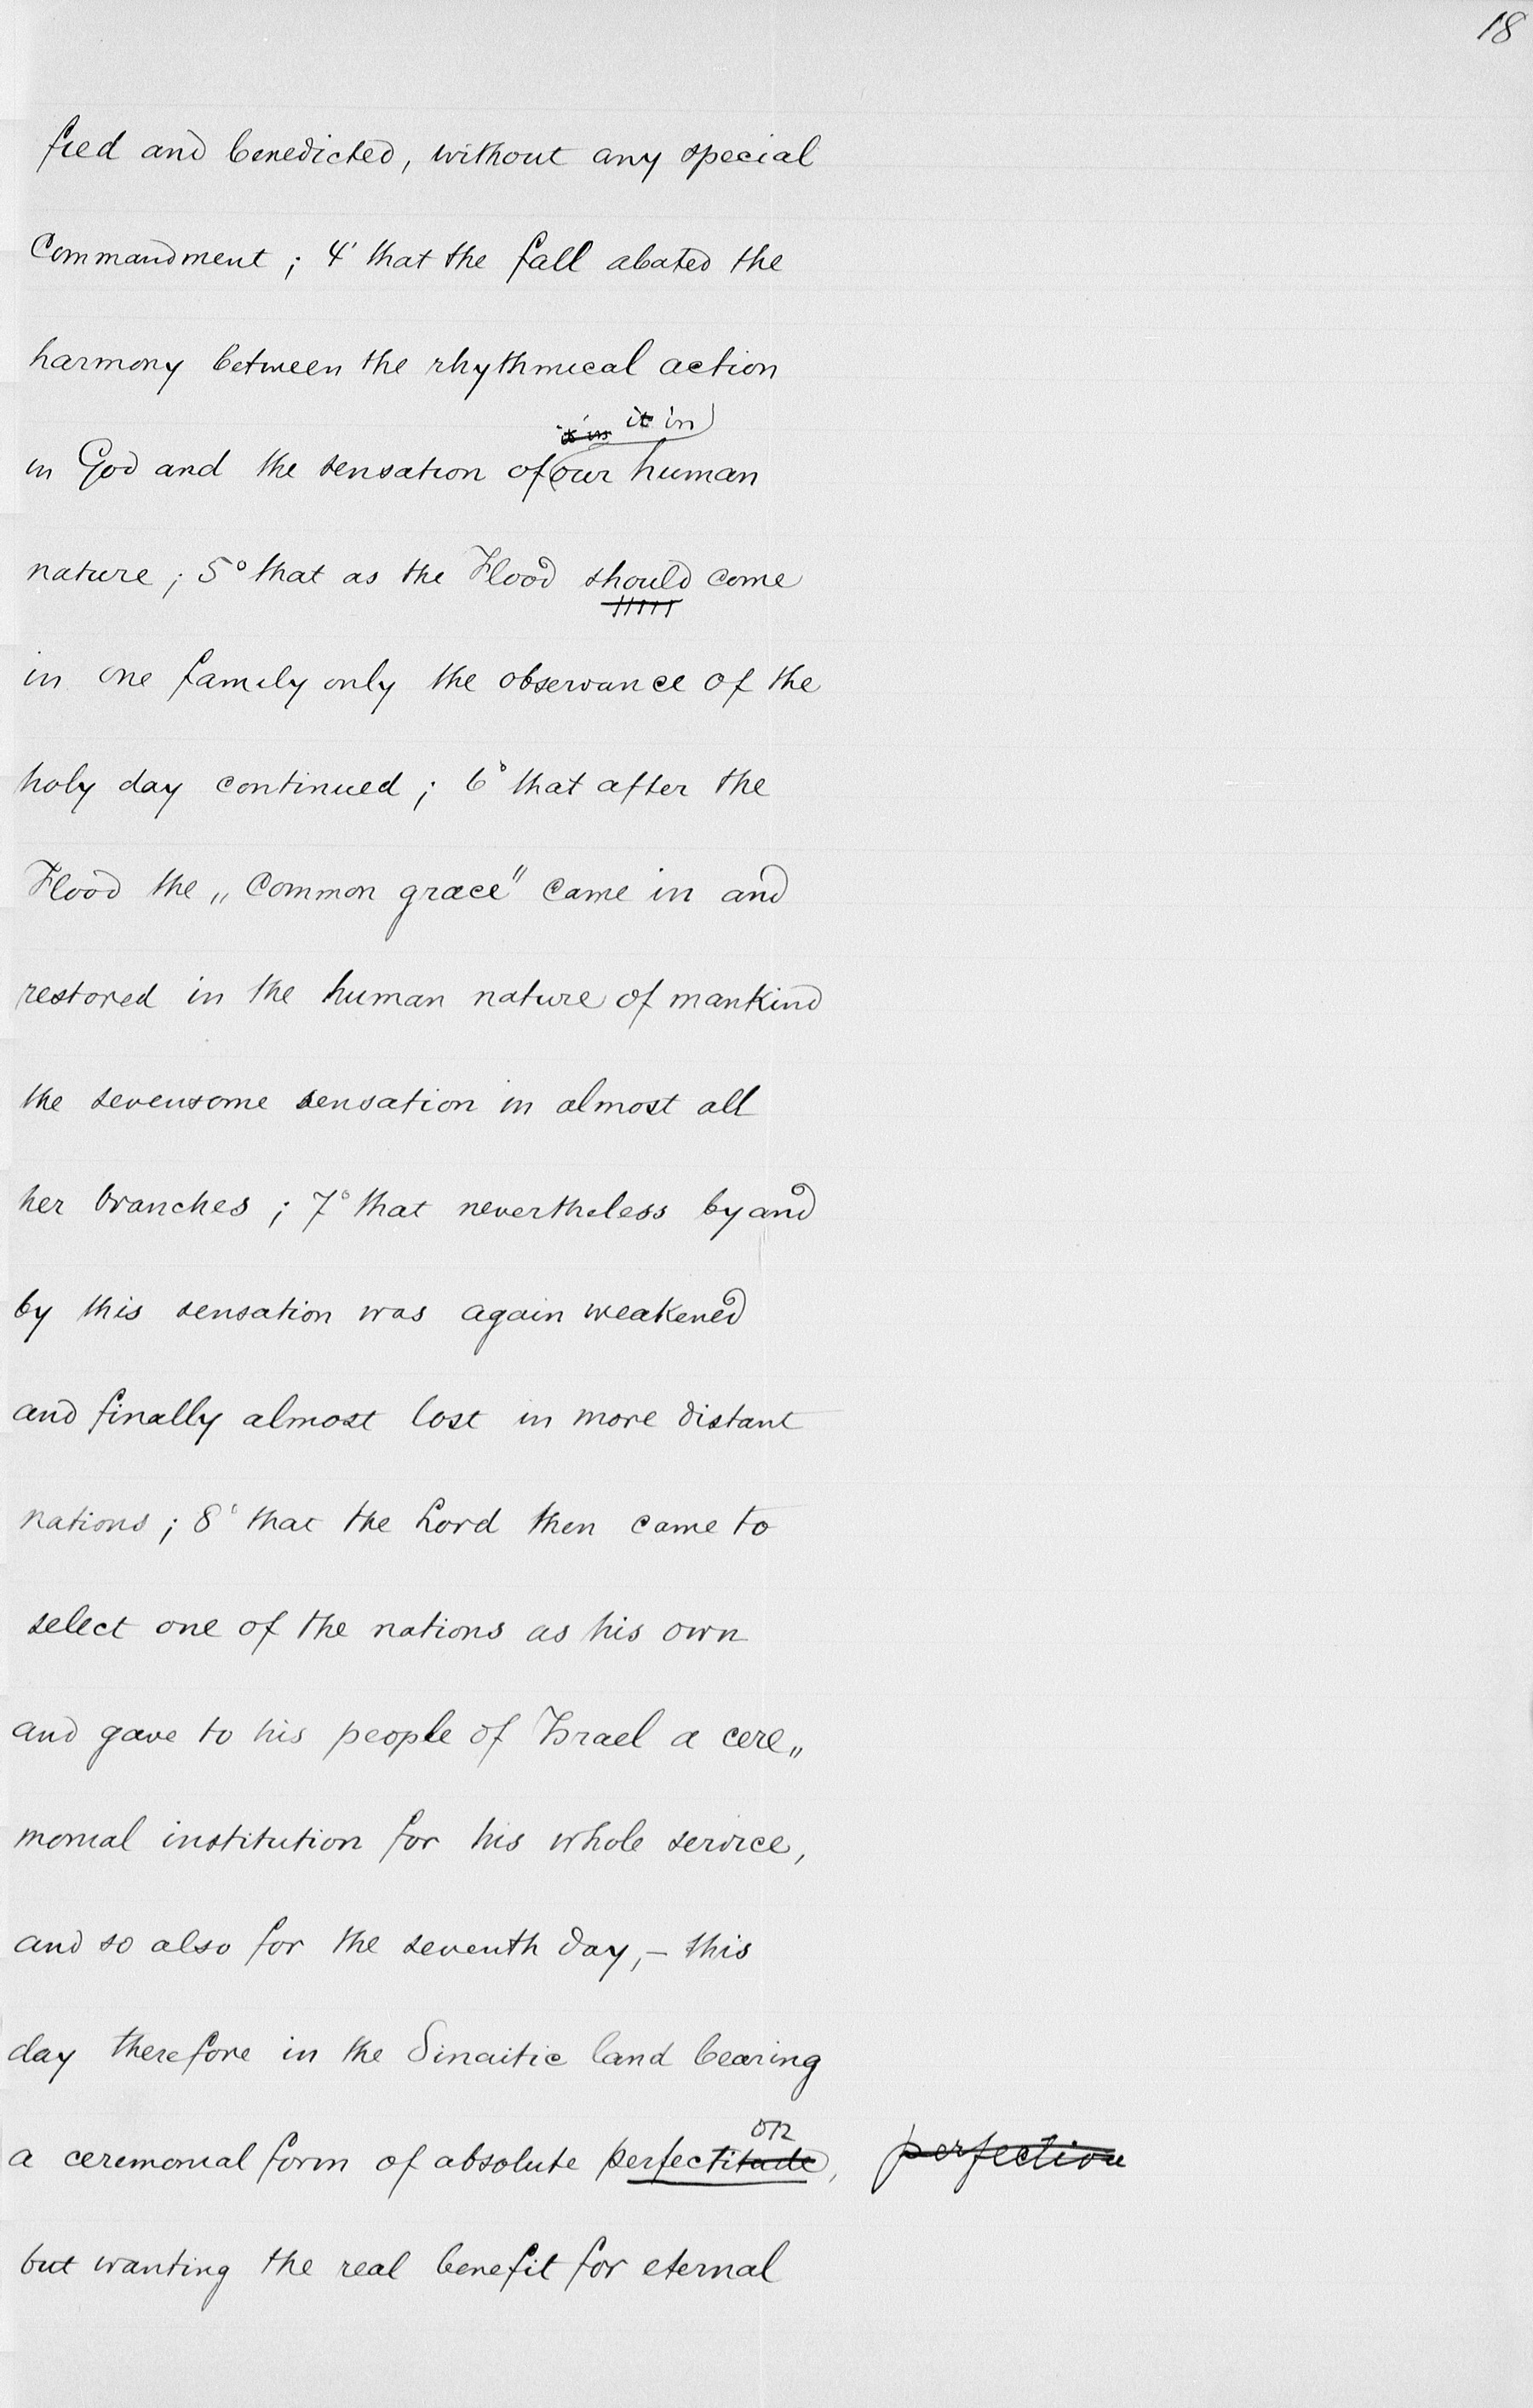 18
fied and benedicted, without any special
Commandment; 4° that the fall abated the
harmony between the rhythmical action
it in
in God and the sensation of our human
nature; 5° that as the Flood should come
in one family only the observance of the
holy day continued; 6° that after the
Flood the „Common grace" came in and
restored in the human nature of mankind
the sevensome sensation in almost all
her branches; 7° that nevertheless by and
by this sensation was again weakened
and finally almost lost in more distant
nations; 8° that the Lord then came to
select one of the nations as his own
and gave to his people of Israel a cere„
monial institution for his whole service,
and so also for the seventh day,— this
day therefore in the Sinaitic land bearing
on
a ceremonial form of absolute perfectitude, perfection
but wanting the real benefit for eternal